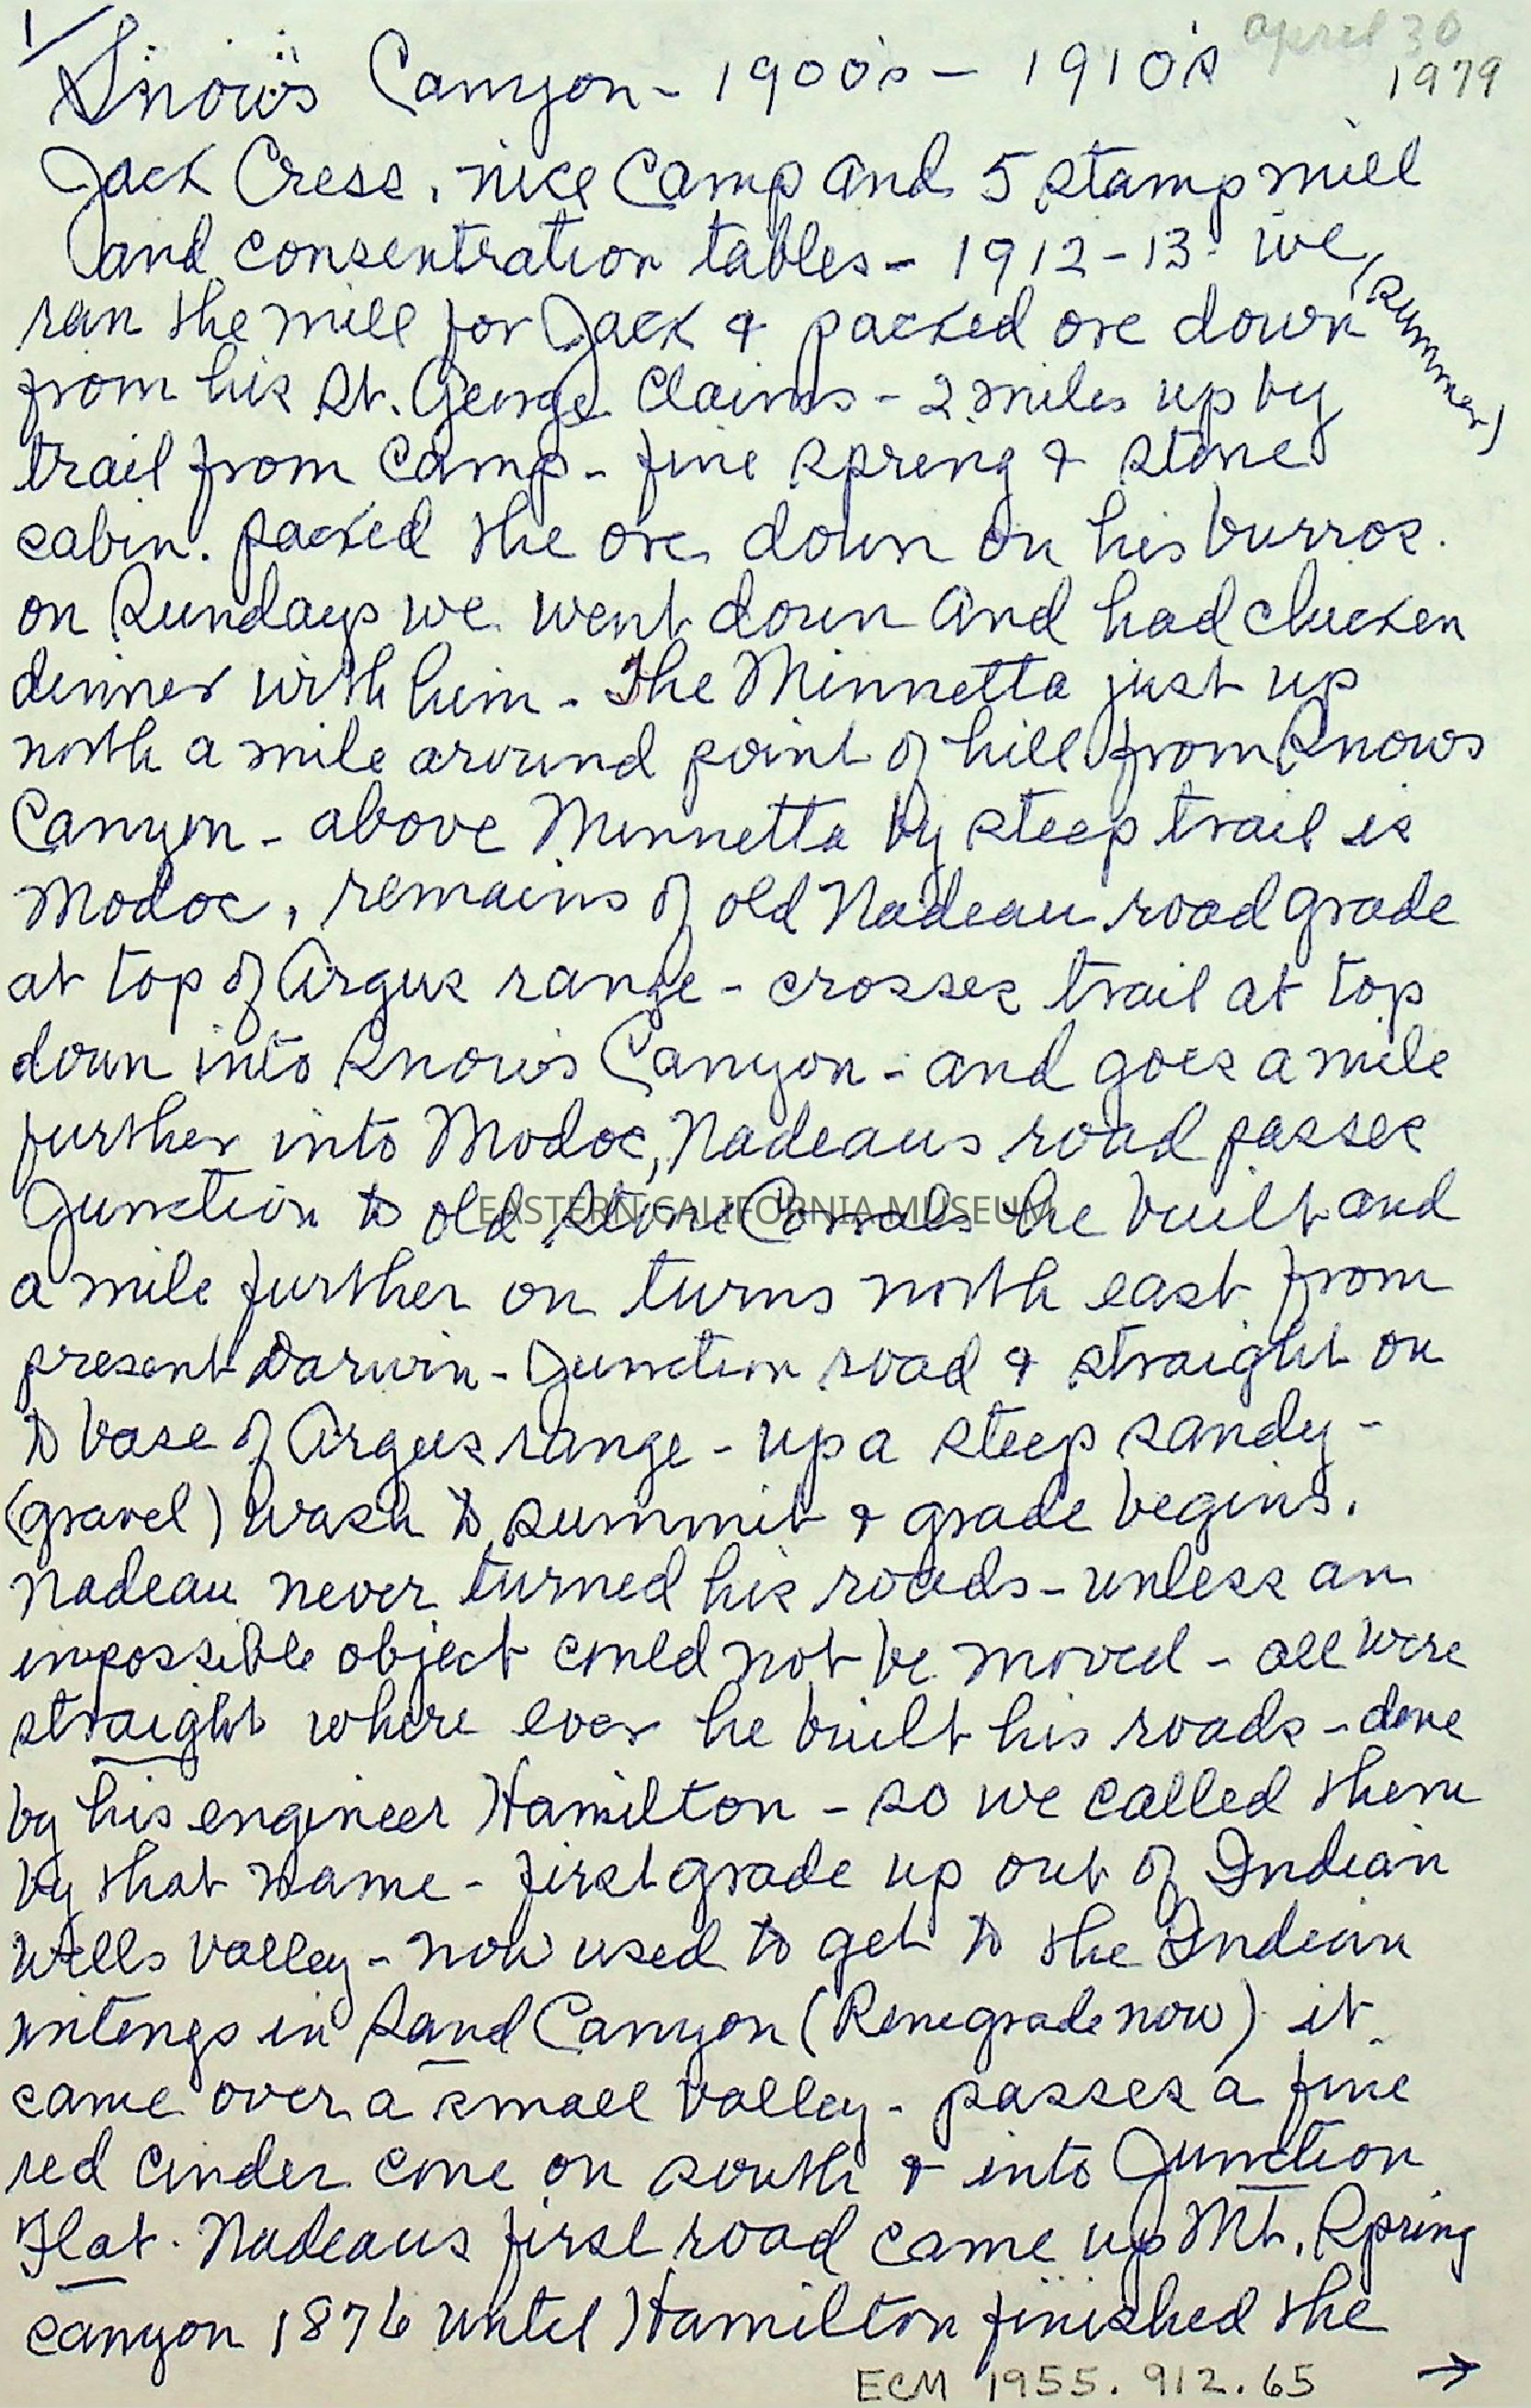 1/
April 30
Snow's Canyon - 1900's - 1910's 1979
Jack Cress. nice Camp and 5 stamp mill
and consentration tables - 1912-13 - we (Summer)
ran the mill for Jack & packed ore down
from his St. George Claims - 2 miles up by
trail from camp - fine spring & stone
cabin. packed the ore down on his burros.
on Sundays we went down and had chicken
dinner with him - The Minnetta just up
north a mile around point of hill from Snows
Canyon - above Minnetta by steep trail is
Modoc, remains of old Nadeau road grade
at top of Argus range - crosses trail at top
down into Snow's Canyon - and goes a mile
further into Modoc, Nadeaus road passes
Junction to old stone Corrals he built and
a mile further on turns north east from
present Darwin - Junction road & straight on
to base of Argus range - up a steep sandy -
(gravel) wash to summit & grade begins.
Nadeau never turned his roads - unless an
impossible object could not be moved - all were
straight where ever he built his roads - done
by his engineer Hamilton - so we called them
by that name - first grade up out of Indian
Wells Valley - now used to get to the Indian
writengs in Sand Canyon (Renegrade now) it
came over a small valley - passes a fine
red cinder cone on south & into Junction
Flat. Nadeaus first road came up Mt. Spring
canyon 1876 until Hamilton finished the
→
ECM 1955.912.65
EASTERN CALIFORNIA MUSEUM